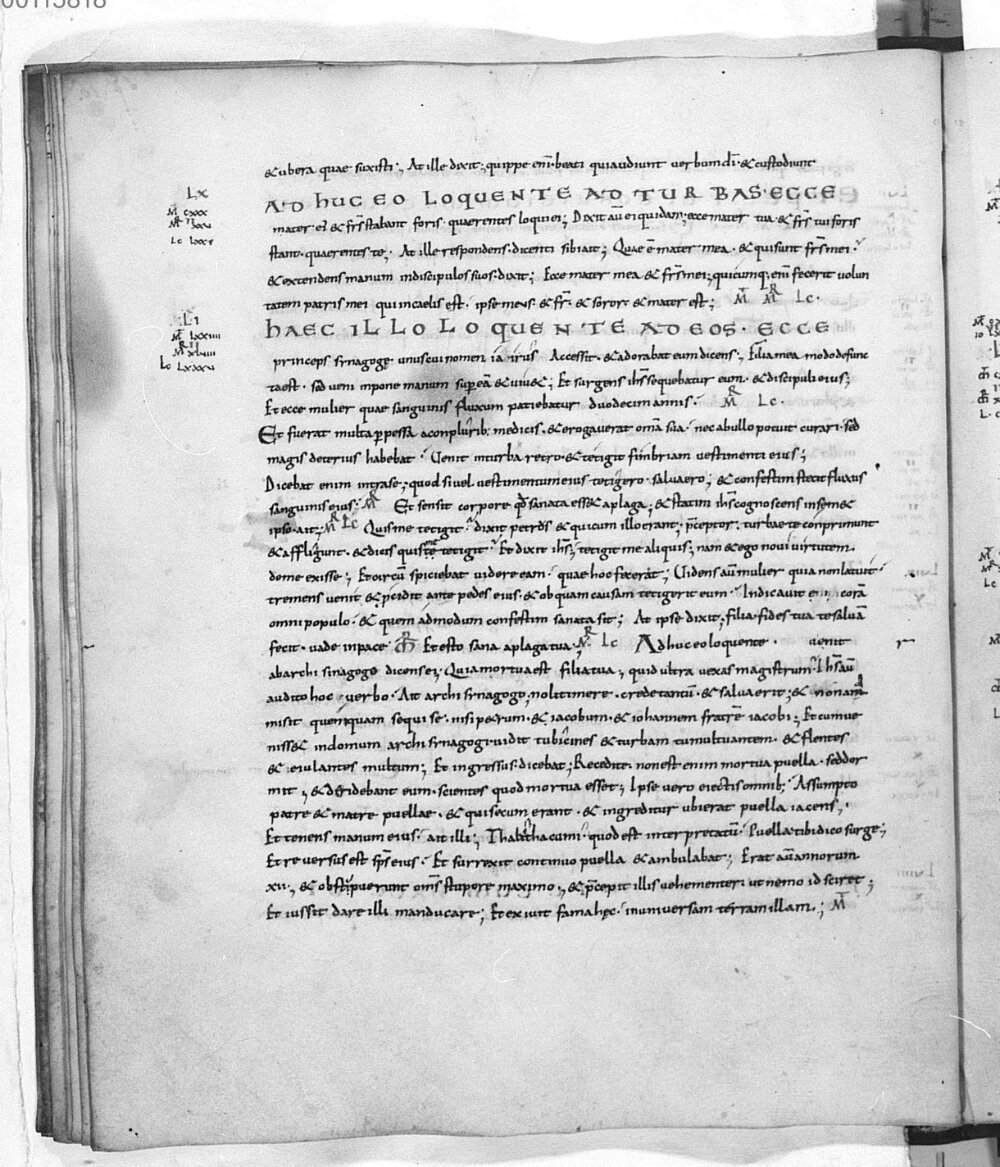 00115818
&ubera quae suxisti; At ille dixit; quippe eni beati quiaudiunt uerbum di &custodiunt
LX
AD HUC EO LOQUENTE AD TURBAS ECCE
M CXXX
MR
LC
mater ei &frs stabant foris quaerentes loqui ei; Dixit au ei quidam; ecce mater tua &frs tui foris
stant quaerentes te; At ille respondens dicenti sibi ait; Quae e mater mea &qui sunt frs mei
&extendens manum indiscipulos suos dixit; Ecce mater mea &frs mei; quicumq; eni fecerit uolun
tatem patris mei qui incaelis est ipse meus &fr &soror &mater est; M MR Lc
LI
HAEC ILLO LOQUENTE AD EOS ECCE
M LXXIIII
MR
LC LXXXV
princeps synagoge unus cui nomen iairus Accessit &adorabat eum dicens; Filia mea modo defunc
ta est sed ueni inpone manum sup ea &uiu&; Et surgens ihs sequebatur eum &discipuli eius;
Et ecce mulier quae sanguinis fluxum patiebatur duodecim annis MR Lc
Et fuerat multa ppessa aconplurib; medicis &erogauerat oma sua nec ab ullo potuit curari sed
magis deterius habebat Uenit inturba retro &tetigit fimbriam uestimenti eius;
Dicebat enim intra se; quod si uel uestimentum eius tetigero saluaero; &confestim stetit fluxus
sanguinis eius MR Et sensit corpore qd sanata ess& aplaga; &statim ihs cognoscens insem&
ipso ait; MR Lc Quis me tetigit dixit petrus &qui cum illo erant; pceptor turbae te conprimunt
&affligunt &dicis quis me tetigit Et dixit ihs; tetigit me aliquis; nam &ego noui uirtutem
de me exisse; Et circu spiciebat uidere eam quae hoc fecerat; Uidens au mulier quia non latuit
tremens uenit &pcidit ante pedes eius &ob quam causam tetigerit eum Indicauit cora
omni populo &quem admodum confestim sanata sit; At ipse dixit; filia fides tua te salua
fecit uade inpace Et esto sana aplaga tua; MR Lc Adhuc eo loquente uenit
ab archi sinagogo dicens ei; Quia mortua est filia tua; quid ultra uexas magistrum Ihs au
audito hoc uerbo Ait archi synagogo; noli timere crede tantu &salua erit; & non am
misit quemquam sequi se nisi petrum &iacobum &iohannem fratre iacobi; Et cum ue
niss& indomum archi synagogi uidit tubicines &turbam tumultuantem &flentes
&eiulantes multum; Et ingressus dicebat; Recedite non est enim mortua puella sed dor
mit; &deridebant eum scientes quod mortua esset; Ipse uero eiectis omnib; Assumpto
patre &matre puellae &qui secum erant &ingreditur ubi erat puella iacens;
Et tenens manum eius ait illi; Thabitha cumi quod est interpretatu Puella tibi dico surge;
Et reuersus est sps eius Et surrexit continuo puella &ambulabat; Erat au annorum
xii; &obstipuerunt oms stupore maximo; &pcepit illis uehementer ut nemo id sciret;
Et iussit dare illi manducare; Et exiuit fama hec inuniuersam terram illam; M